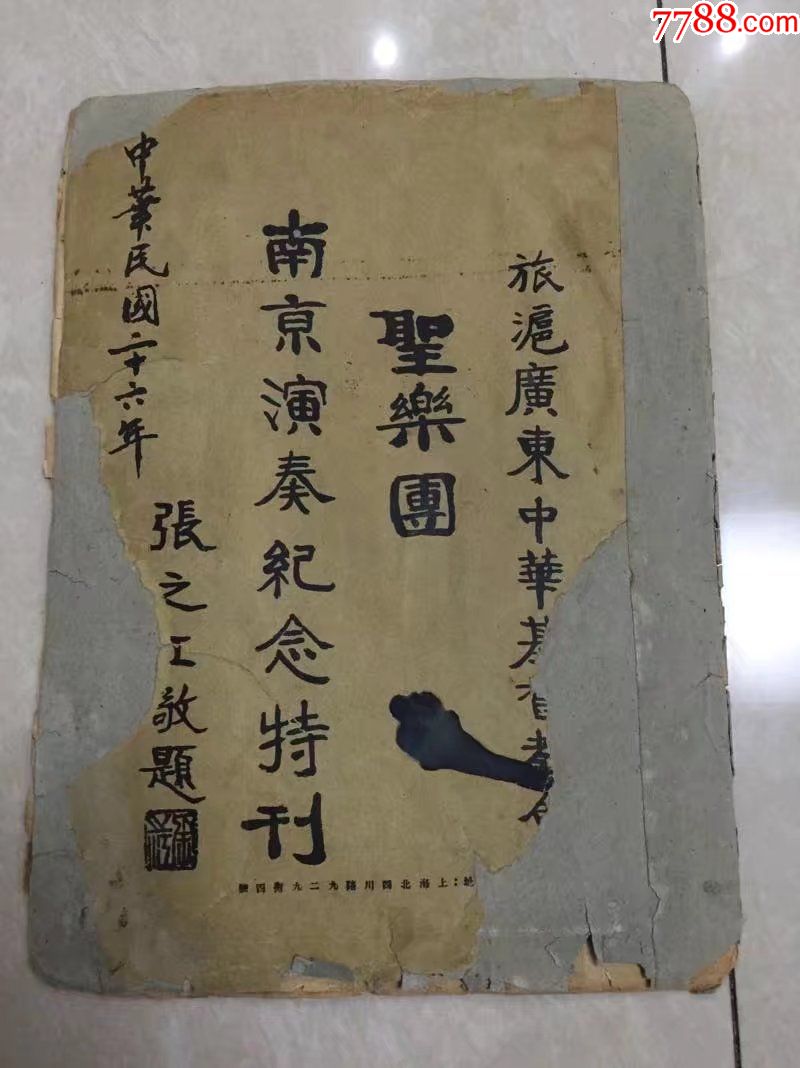 7788.com
旅滬廣東中華基督教會
聖樂團
南京演奏紀念特刊
中華民國二十六年
張之江敬題
址：上海北四川路九二九衖四號